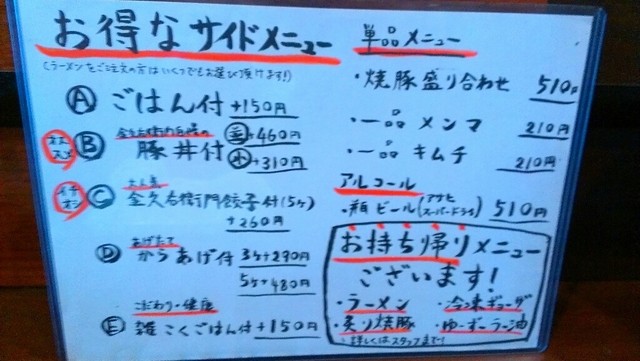 お得なサイドメニュー
(ラーメンをご注文の方はいくつでもお選び頂けます!)
Ⓐ ごはん付 +150円
オススメ Ⓑ 豚丼付 +460円
小 +310円
イチオシ Ⓒ 金久右衛門餃子付(5ヶ)
+260円
Ⓓ あげたて
からあげ付 3ヶ+290円
5ヶ+480円
こだわり・健康
Ⓔ 雑こくごはん付+150円
単品メニュー
・焼豚盛り合わせ 510円
・一品 メンマ 210円
・一品 キムチ 210円
アルコール
・瓶ビール(アサヒスーパードライ) 510円
お持ち帰りメニュー
ございます!
・ラーメン ・冷凍ギョーザ
・炙り焼豚 ・ゆーずーラー油
・詳しくはスタッフまで!